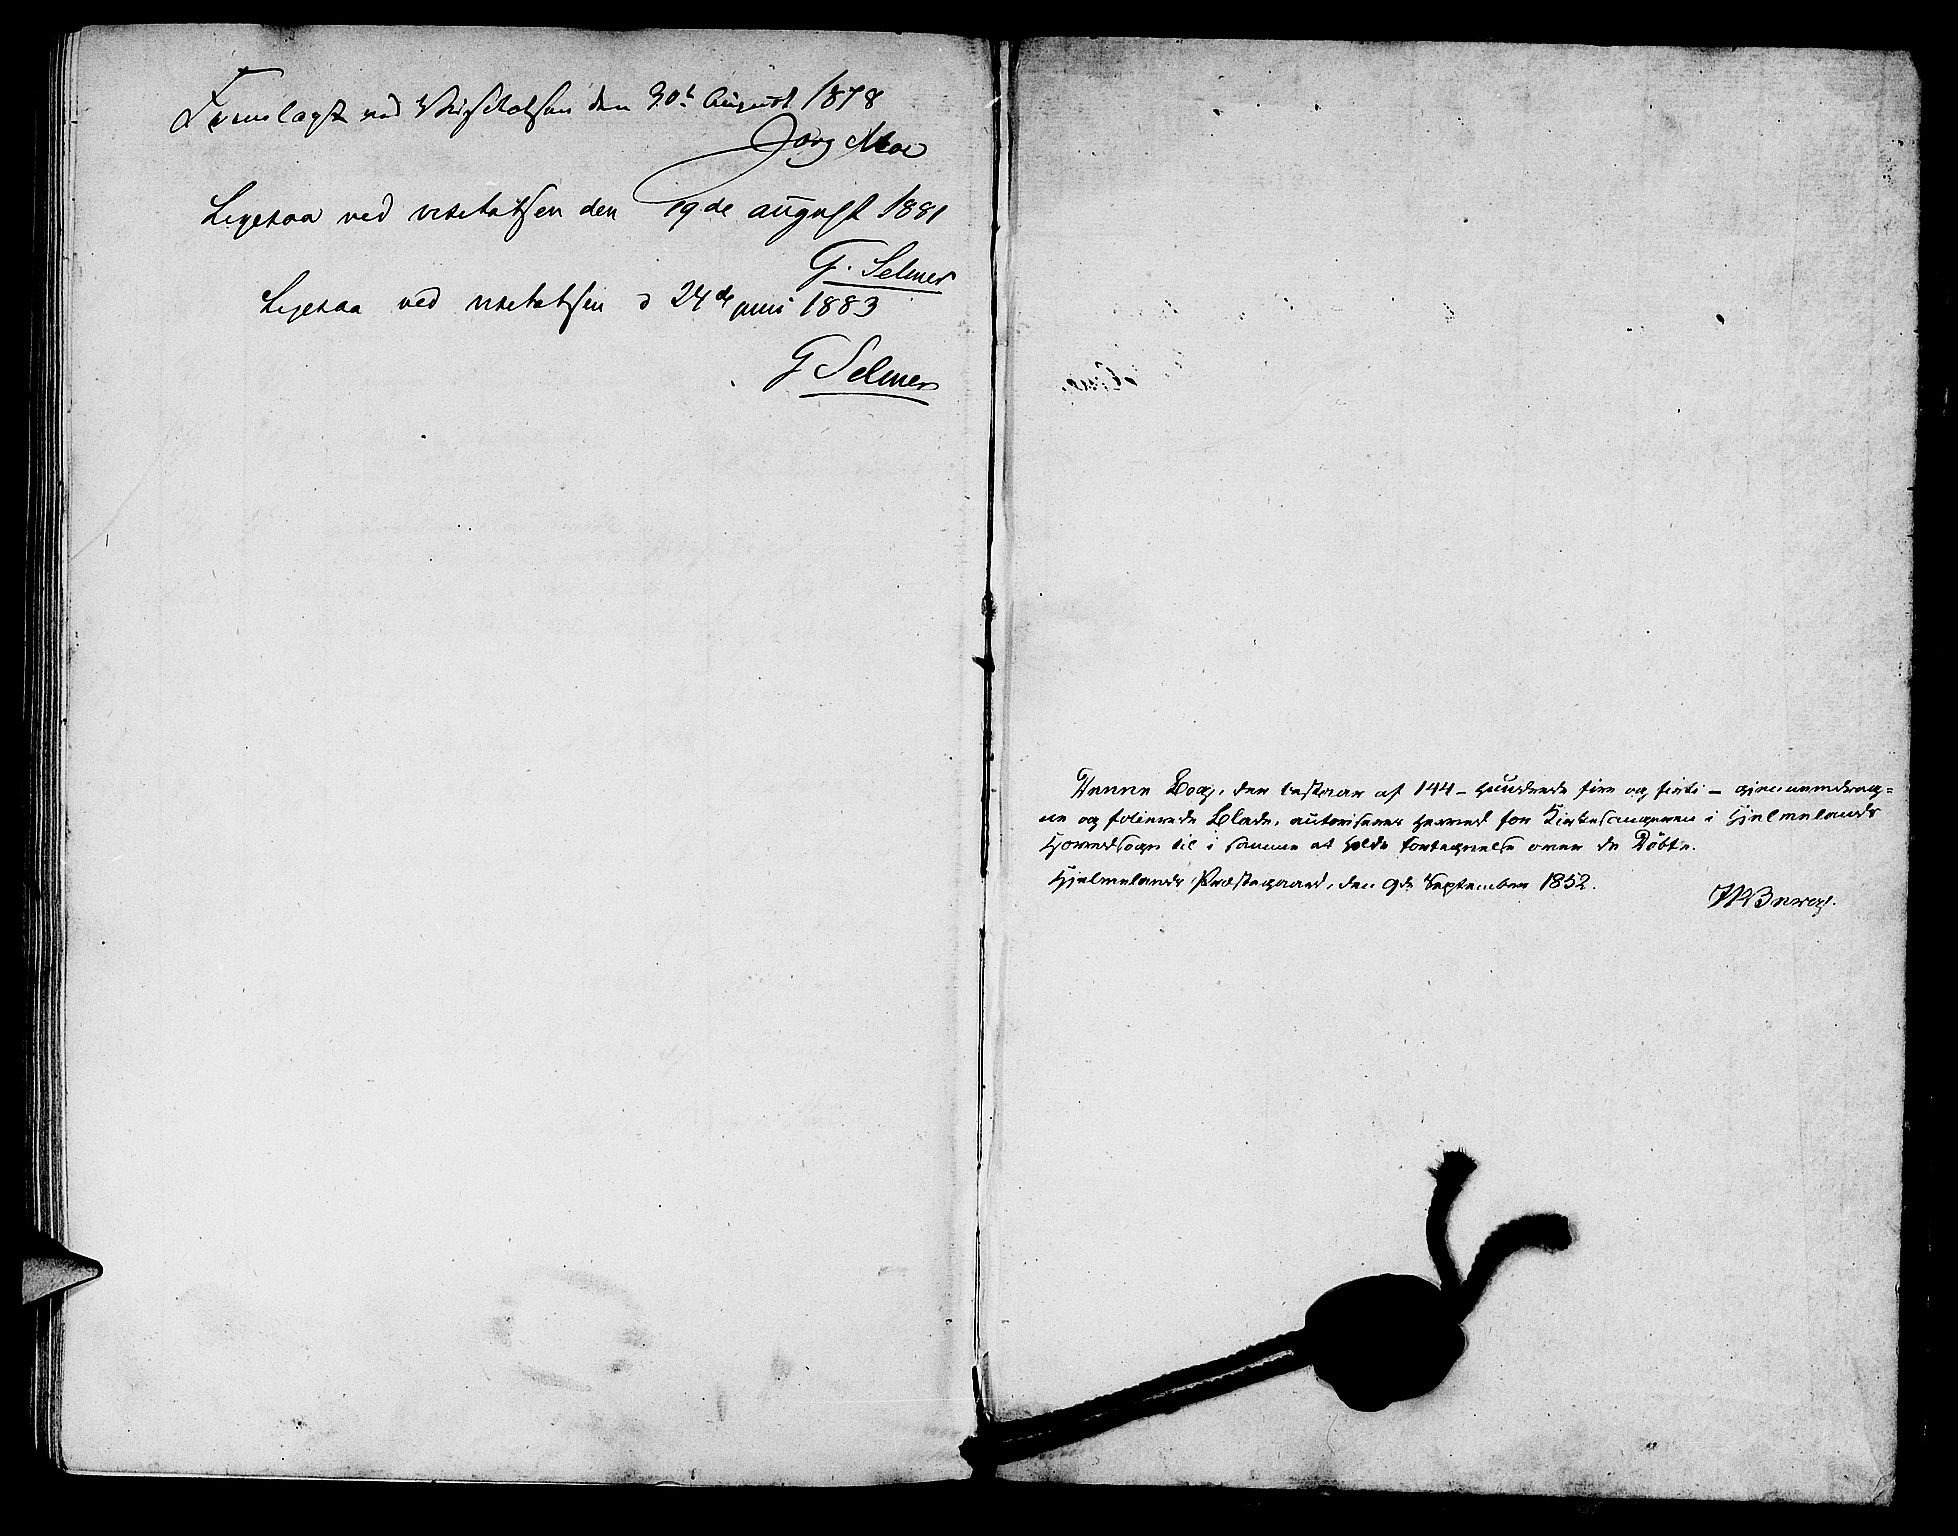 Fremlagt ved Visitatsen den 30te August 1878
Jörg Moe
Ligesaa ved visitatsen den 19de august 1881
G. Selmer
Ligesaa ved visitatsen d 24de juni 1883
G Selmer
Denne Bog, der bestaaer af 144 - hundrede fire og firti - gjennemdrag=
ne og folierede Blade, autoriseres herved for Kirkesangeren i Hjelmelands
Hovedsogn til i samme at holde Fortegnelse over de Döbte.
Hjelmelands Præstegaard, den 9de September 1852.